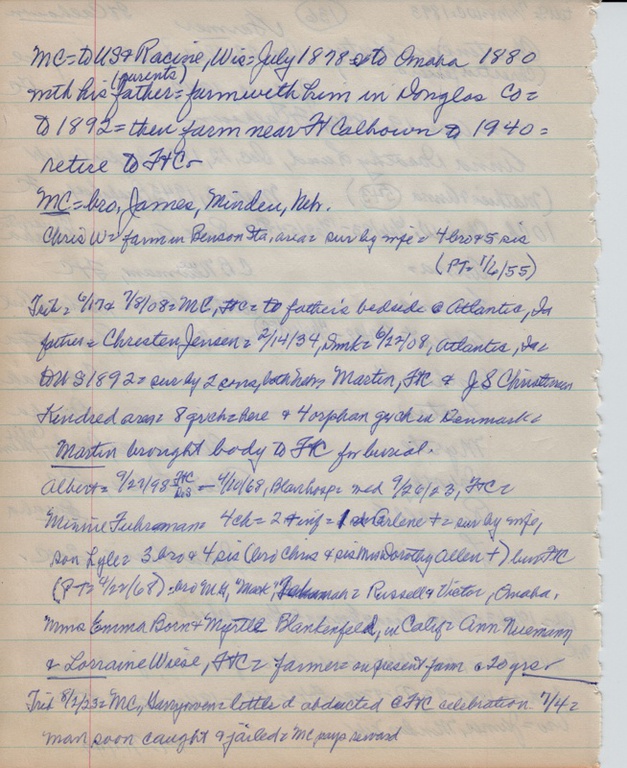 MC = to US & Racine, Wis = July 1878 & to Omaha 1880
with his father = farm with him in Douglas Co =
(parents)
to 1892 = then farm near Ft Calhoun to 1940 =
retire to FtC -
MC = bro, James, Minden, Neb.
Chris W = farm in Benson Sta, area = sur by wife = 4 bro & 5 sis
(PT = 1/6/55)
Trib = 6/17 & 7/8/08 = MC, FtC = to father's bedside @ Atlantic, Ia
father = Chresten Jensen = 2/14/34, Dmk = 6/27/08, Atlantic, Ia =
to US 1892 = sur by 2 sons, both Martin, FtC & J S Christensen
Kindred area = 8 grch = here & 4 orphan grch in Denmark =
Martin brought body to FtC for burial.
Albert = 9/27/98 FtC - 4/10/68, Blair hosp = wed 9/26/23, FtC =
Minnie Fuhrman = 4 ch = 2 + inf = Arlene + = sur by wife,
son Lyle = 3 bro & 4 sis (bro Chris & sis Mrs Dorothy Allen +) bur FtC
(PT = 4/22/68) = bro "Mack", = Russell & Victor, Omaha,
Mmes Emma Born & Myrtle Blankenfeld, in Calif = Ann Niemann
& Lorraine Wiese, FtC = farmer = on present farm c 20 yrs
Trib 8/2/23 = MC, = bottle d abducted @ FtC celebration 7/4 =
man soon caught & jailed = MC pays reward